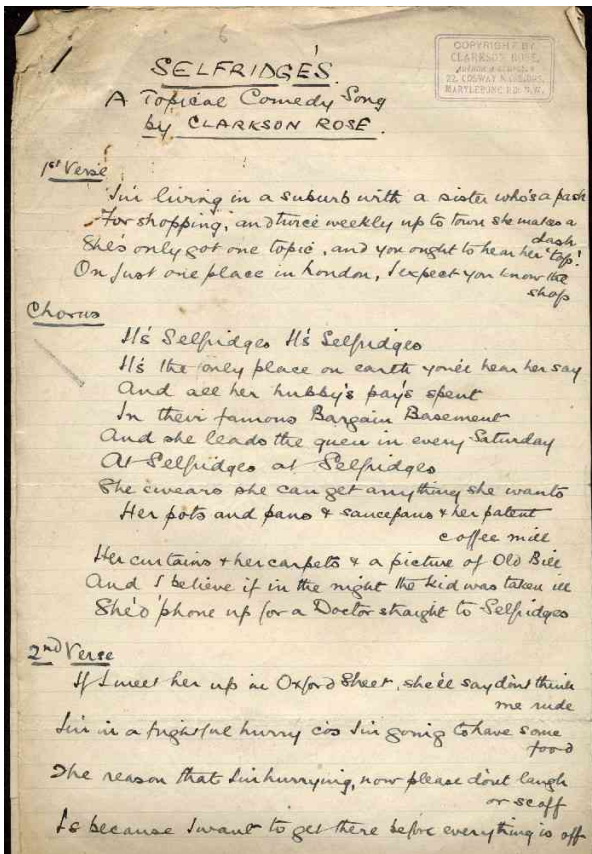 COPYRIGHT BY
CLARKSON ROSE,
22, COSWAY MANSIONS,
MARYLEBONE RD. N.W.
SELFRIDGE'S.
A Topical Comedy Song
by CLARKSON ROSE.
1st Verse
I'm living in a suburb with a sister who's a pash
For shopping, and twice weekly up to town she makes a
dash
She's only got one topic, and you ought to hear her 'top'!
On just one place in London, I expect you know the
shop
Chorus
It's Selfridges It's Selfridges
It's the only place on earth you'll hear her say
And all her hubby's pay's spent
In their famous Bargain Basement
And she leads the queu in every Saturday
At Selfridges at Selfridges
She swears she can get anything she wants
Her pots and pans & saucepans & her patent
coffee mill
Her curtains & her carpets & a picture of Old Bill
And I believe if in the night the kid was taken ill
She'd 'phone up for a Doctor straight to Selfridges
2nd Verse
If I meet her up in Oxford Street, she'll say don't think
me rude
I'm in a frightful hurry cos I'm going to have some
food
The reason that I'm hurrying, now please don't laugh
or scoff
Is because I want to get there before everything is off